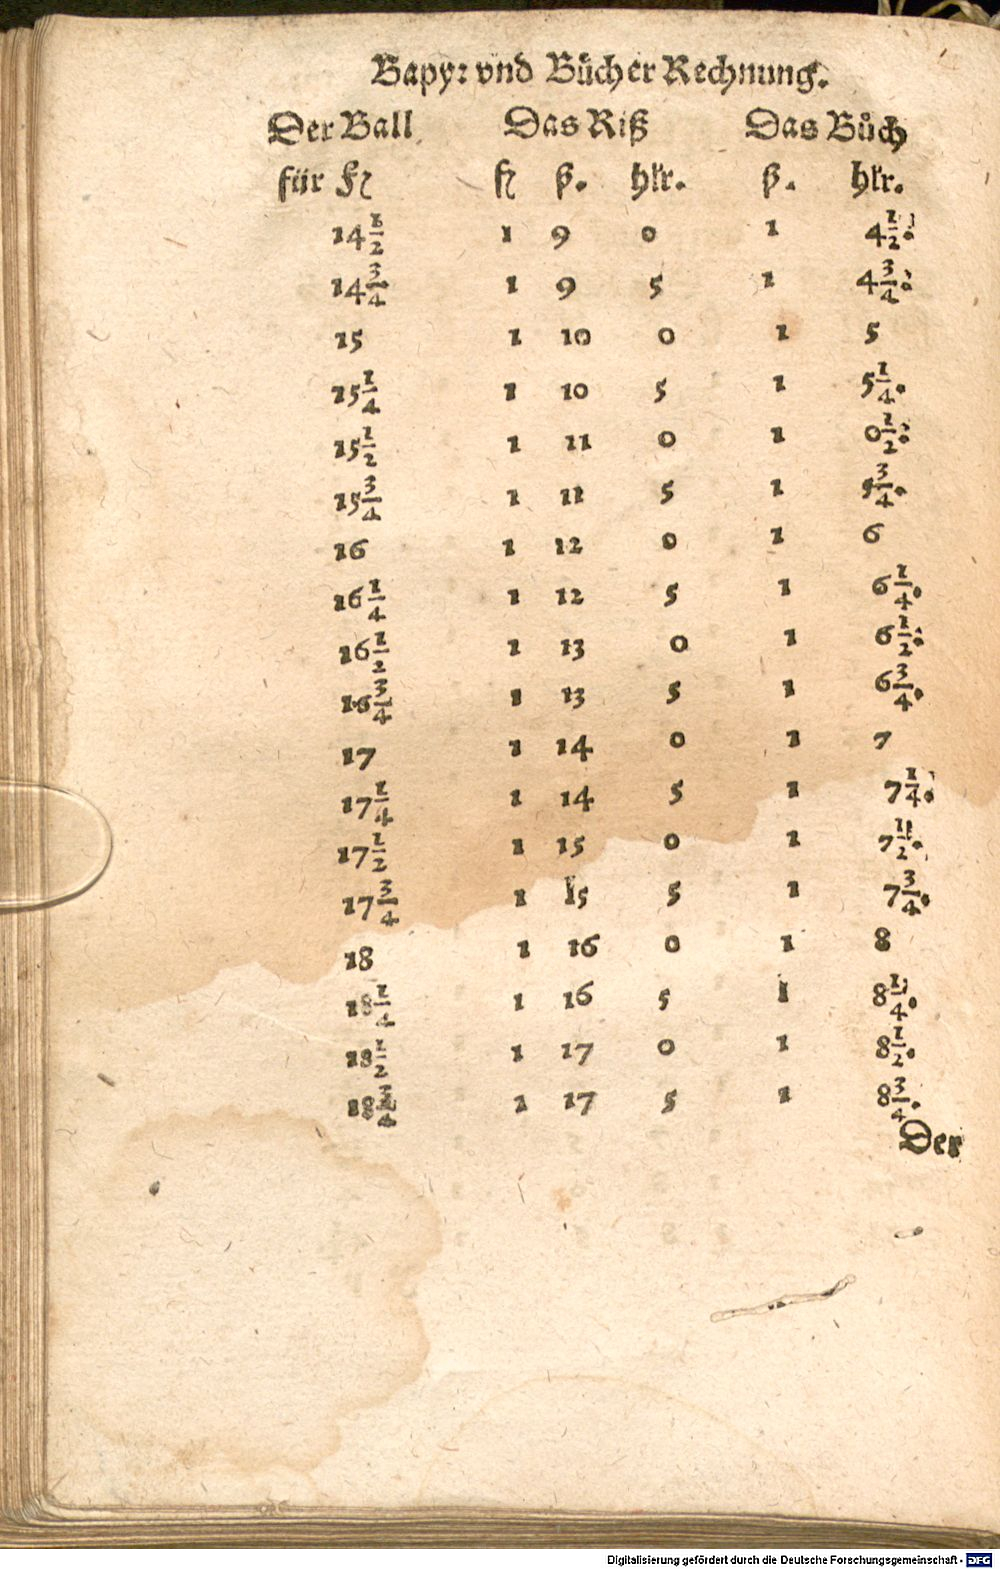 Bapyr vnd Bücher Rechnung.
Der Ball Das Riß Das Bůch
für fl fl ß. hlr. ß. hlr.
14 1/2 1 9 0 1 4 1/2.
14 3/4 1 9 5 1 4 3/4.
15 1 10 0 1 5
15 1/4 1 10 5 1 5 1/4.
15 1/2 1 11 0 1 0 1/2.
15 3/4 1 11 5 1 5 3/4.
16 1 12 0 1 6
16 1/4 1 12 5 1 6 1/4.
16 1/2 1 13 0 1 6 1/2.
16 3/4 1 13 5 1 6 3/4.
17 1 14 0 1 7
17 1/4 1 14 5 1 7 1/4.
17 1/2 1 15 0 1 7 1/2.
17 3/4 1 15 5 1 7 3/4.
18 1 16 0 1 8
18 1/4 1 16 5 1 8 1/4.
18 1/2 1 17 0 1 8 1/2.
18 3/4 1 17 5 1 8 3/4.
Der
Digitalisierung gefördert durch die Deutsche Forschungsgemeinschaft - DFG